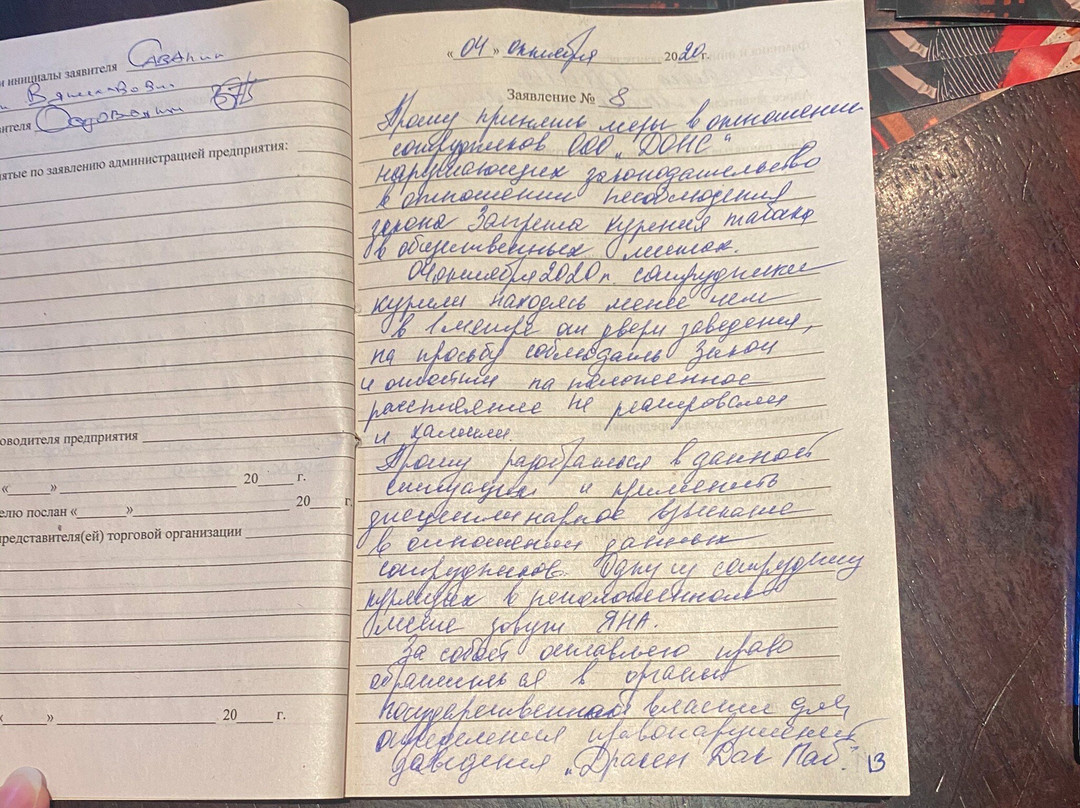 и инициалы заявителя Саванин
вителя
нятые по заявлению администрацией предприятия:
оводителя предприятия
« » 20 г.
елю послан « » 20 г.
представителя(ей) торговой организации
« » 20 г.
« 04 » октября 2020 г.
Заявление № 8
Прошу принять меры в отношении
сотрудников ООО „ДОНС“
нарушающих законодательство
в отношении несоблюдения
закона Запрета курения табака
в общественных местах.
04 октября 2020 г. сотрудники
курили находясь менее чем
в 1 метре от двери заведения,
на просьбу соблюдать Закон
и отойти на положенное
расстояние не реагировали
и хамили.
Прошу разобраться в данной
ситуации и применить
дисциплинарное взыскание
в отношении данных
сотрудников. Одну из сотрудниц
курящих в неположенном
месте зовут ЯНА.
За собой оставляю право
обратиться в органы
государственной власти для
определения правонарушений
заведения „Дракен Дак Паб“.
13